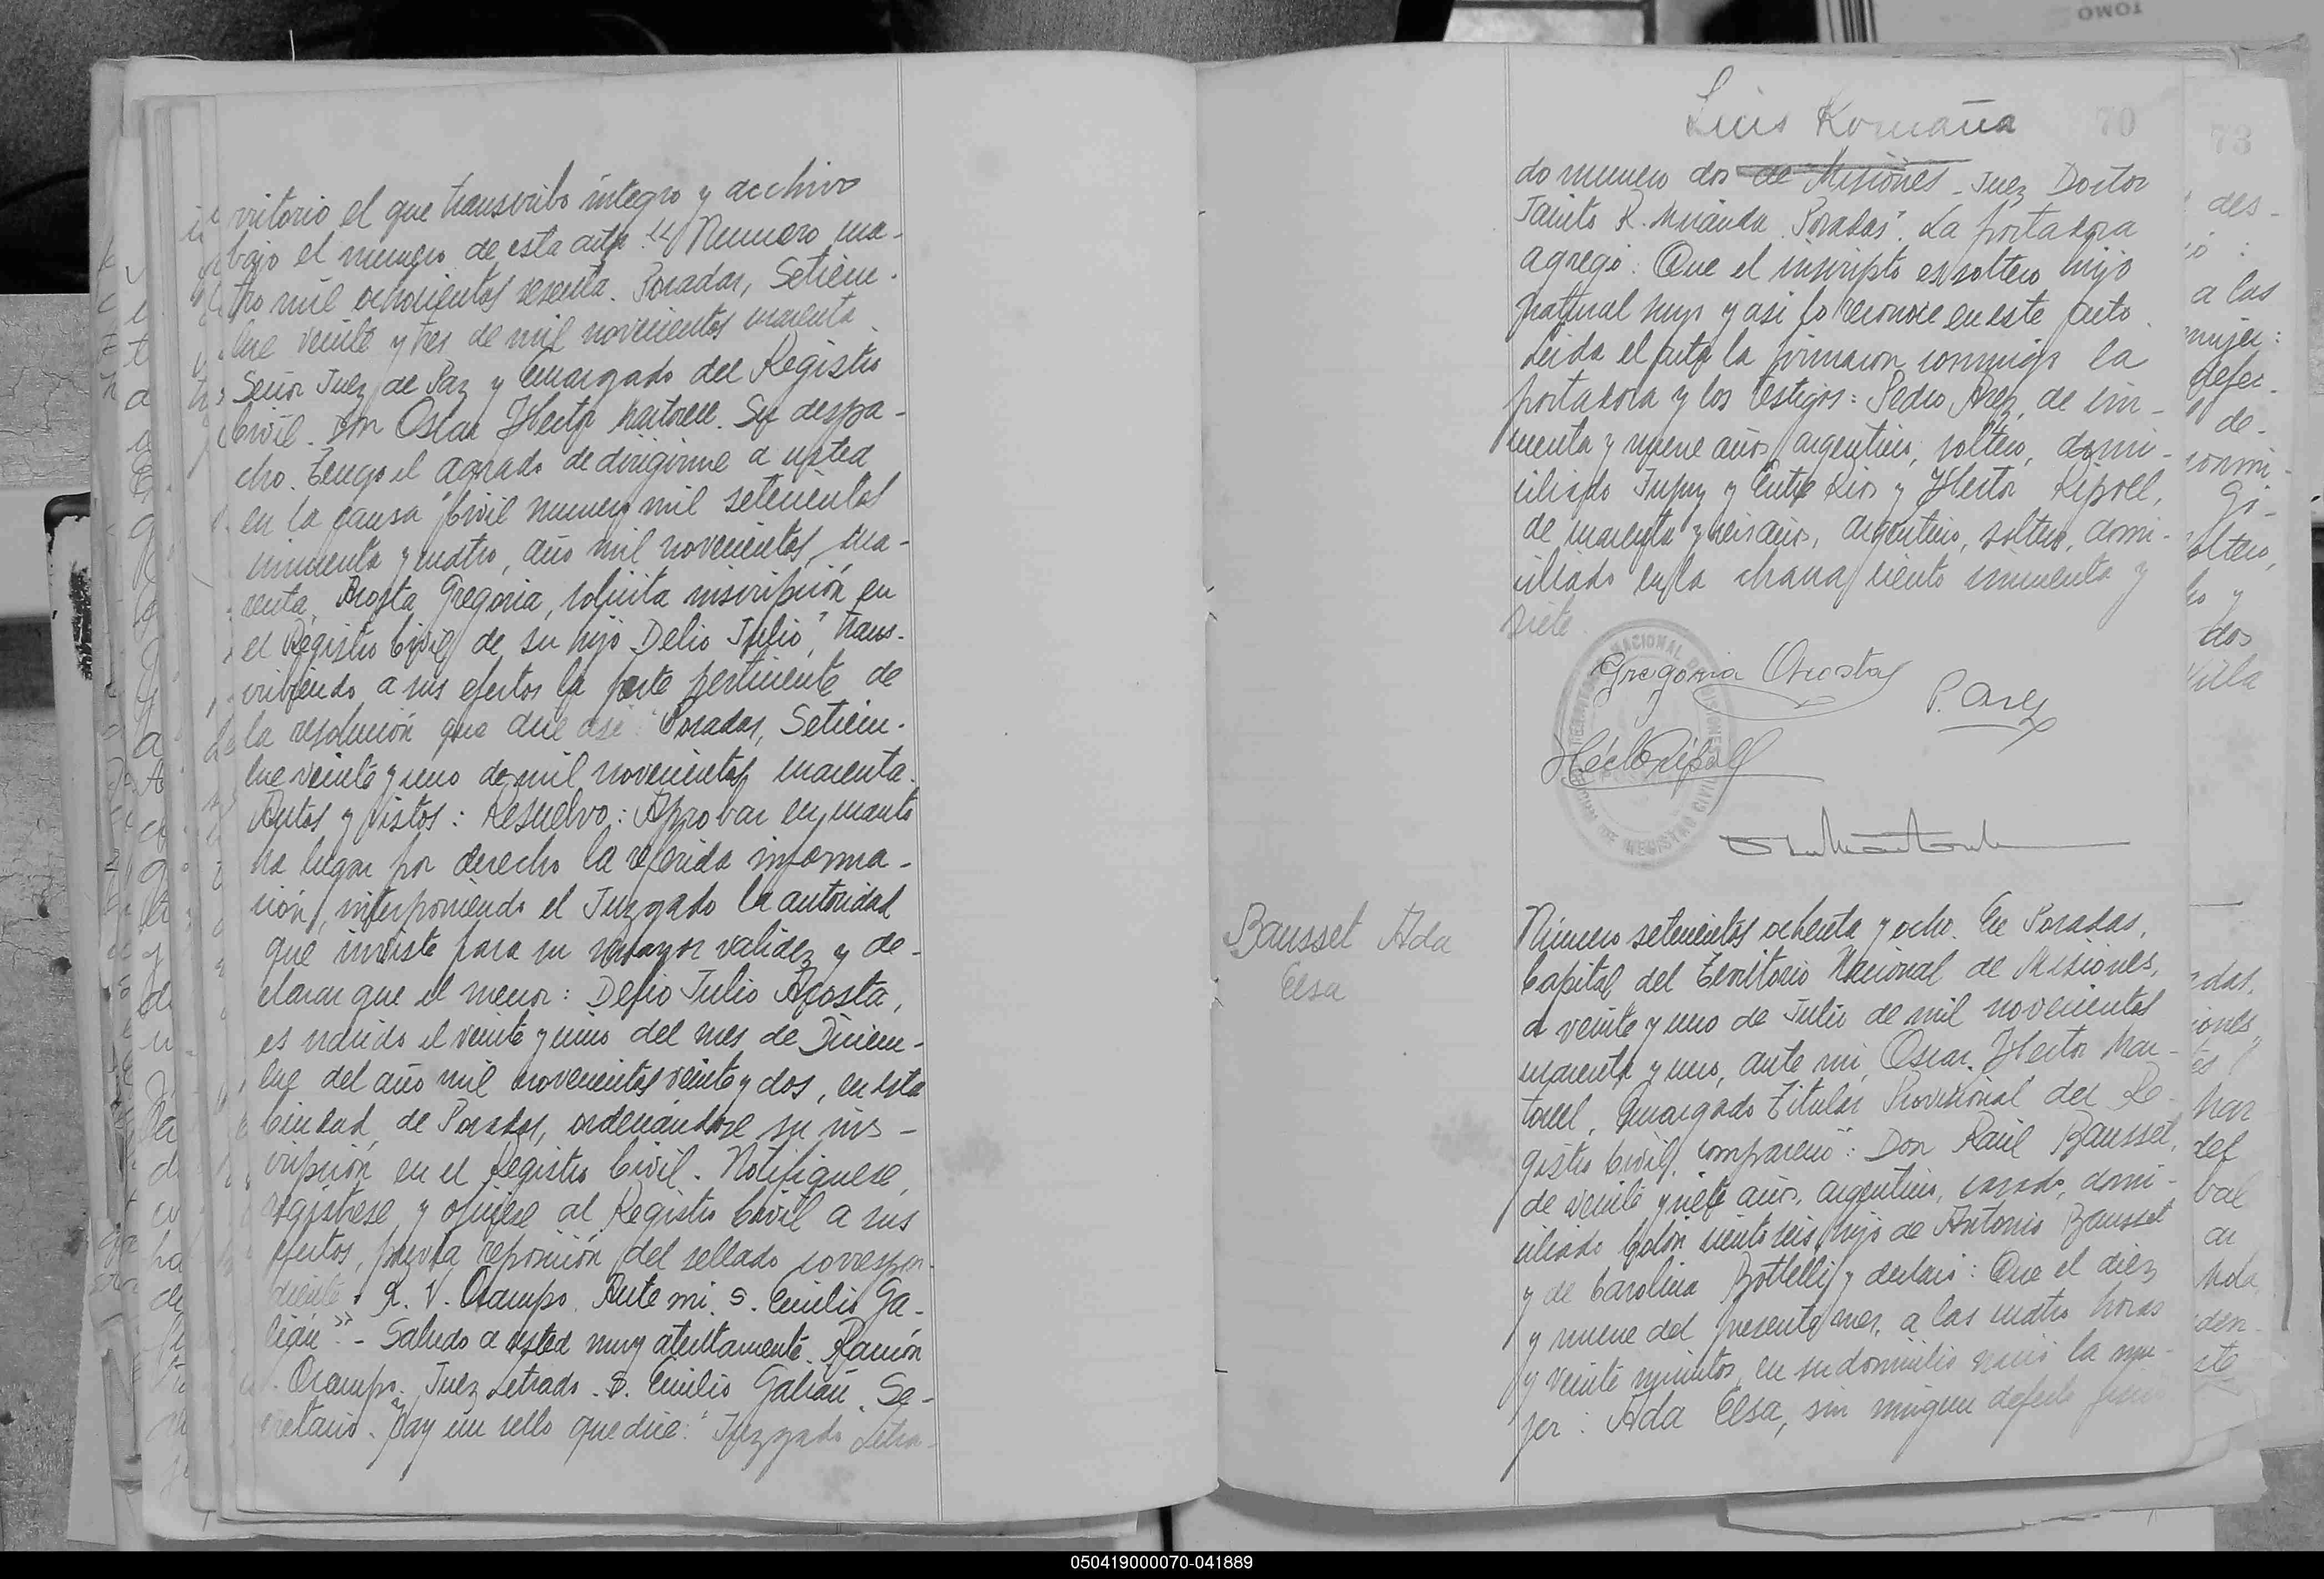 rritorio el que transcribo integro y archivo
bajo el numero de esta acta: "Numero cua-
tro mil ochocientos sesenta. Posadas, Setiem-
bre veinte y tres de mil novecientos cuarenta
Señor Juez de Paz y Encargado del Registro
Civil. Don Oscar Hector Martorell. Su despa-
cho. Tengo el agrado de dirigirme a usted
en la causa Civil numero mil setecientos
cincuenta y cuatro, año mil novecientos cua-
renta, Acosta Gregoria, solicita inscripción en
el Registro Civil de su hijo Delio Julio", trans-
cribiendo a sus efectos la parte pertinente de
la resolución que dice asi: "Posadas, Setiem-
bre veinte y uno de mil novecientos cuarenta.
Autos y vistos: Resuelvo: Aprobar en cuanto
ha lugar por derecho la referida informa-
ción, interponiendo el Juzgado la autoridad
que inviste para su mayor validez y de-
clarar que el menor: Delio Julio Acosta,
es nacido el veinte y cinco del mes de Diciem-
bre del año mil novecientos veinte y dos, en esta
Ciudad de Posadas, ordenándose su ins-
cripción en el Registro Civil. Notifiquese,
registrese y ofíciese al Registro Civil a sus
efectos, previa reposición del sellado correspon-
diente. R. V. Ocampo. Ante mi. S. Emilio Ga-
lián". - Saludo a usted muy atentamente. Ramón
V. Ocampo. Juez Letrado. S. Emilio Galián. Se-
cretario. Hay un sello que dice: "Juzgado Letra-
Luis Romaña
70
do numero dos de Misiones - Juez Doctor
Jacinto R. Miranda. Posadas". La portadora
agregó: Que el inscripto es soltero hijo
natural suyo y asi lo reconoce en este acto.
Leida el acta la firmaron conmigo la
portadora y los testigos: Pedro Arez, de cin-
cuenta y nueve años, argentino, soltero, domi-
ciliado Jujuy y Entre Rios y Hector Ripoll,
de cuarenta y seis años, argentino, soltero, domi-
ciliado en la chacra ciento cincuenta y
siete.
Gregoria Acosta
P. Arez
Héctor Ripoll
Bausset Ada
Elsa
Número setecientos ochenta y ocho. En Posadas,
Capital del Territorio Nacional de Misiones,
a veinte y uno de Julio de mil novecientos
cuarenta y uno, ante mi, Oscar Hector Mar-
torell, Encargado Titular Provisional del Re-
gistro Civil, compareció: Don Raúl Bausset,
de veinte y siete años, argentino, casado, domi-
ciliado Colón ciento seis, hijo de Antonio Bausset
y de Carolina Bottelli y declaró: Que el diez
y nueve del presente mes, a las cuatro horas
y veinte minutos, en su domicilio nació la mu-
jer: Ada Elsa, sin ningun defecto fisico
73
TOMO
050419000070-041889